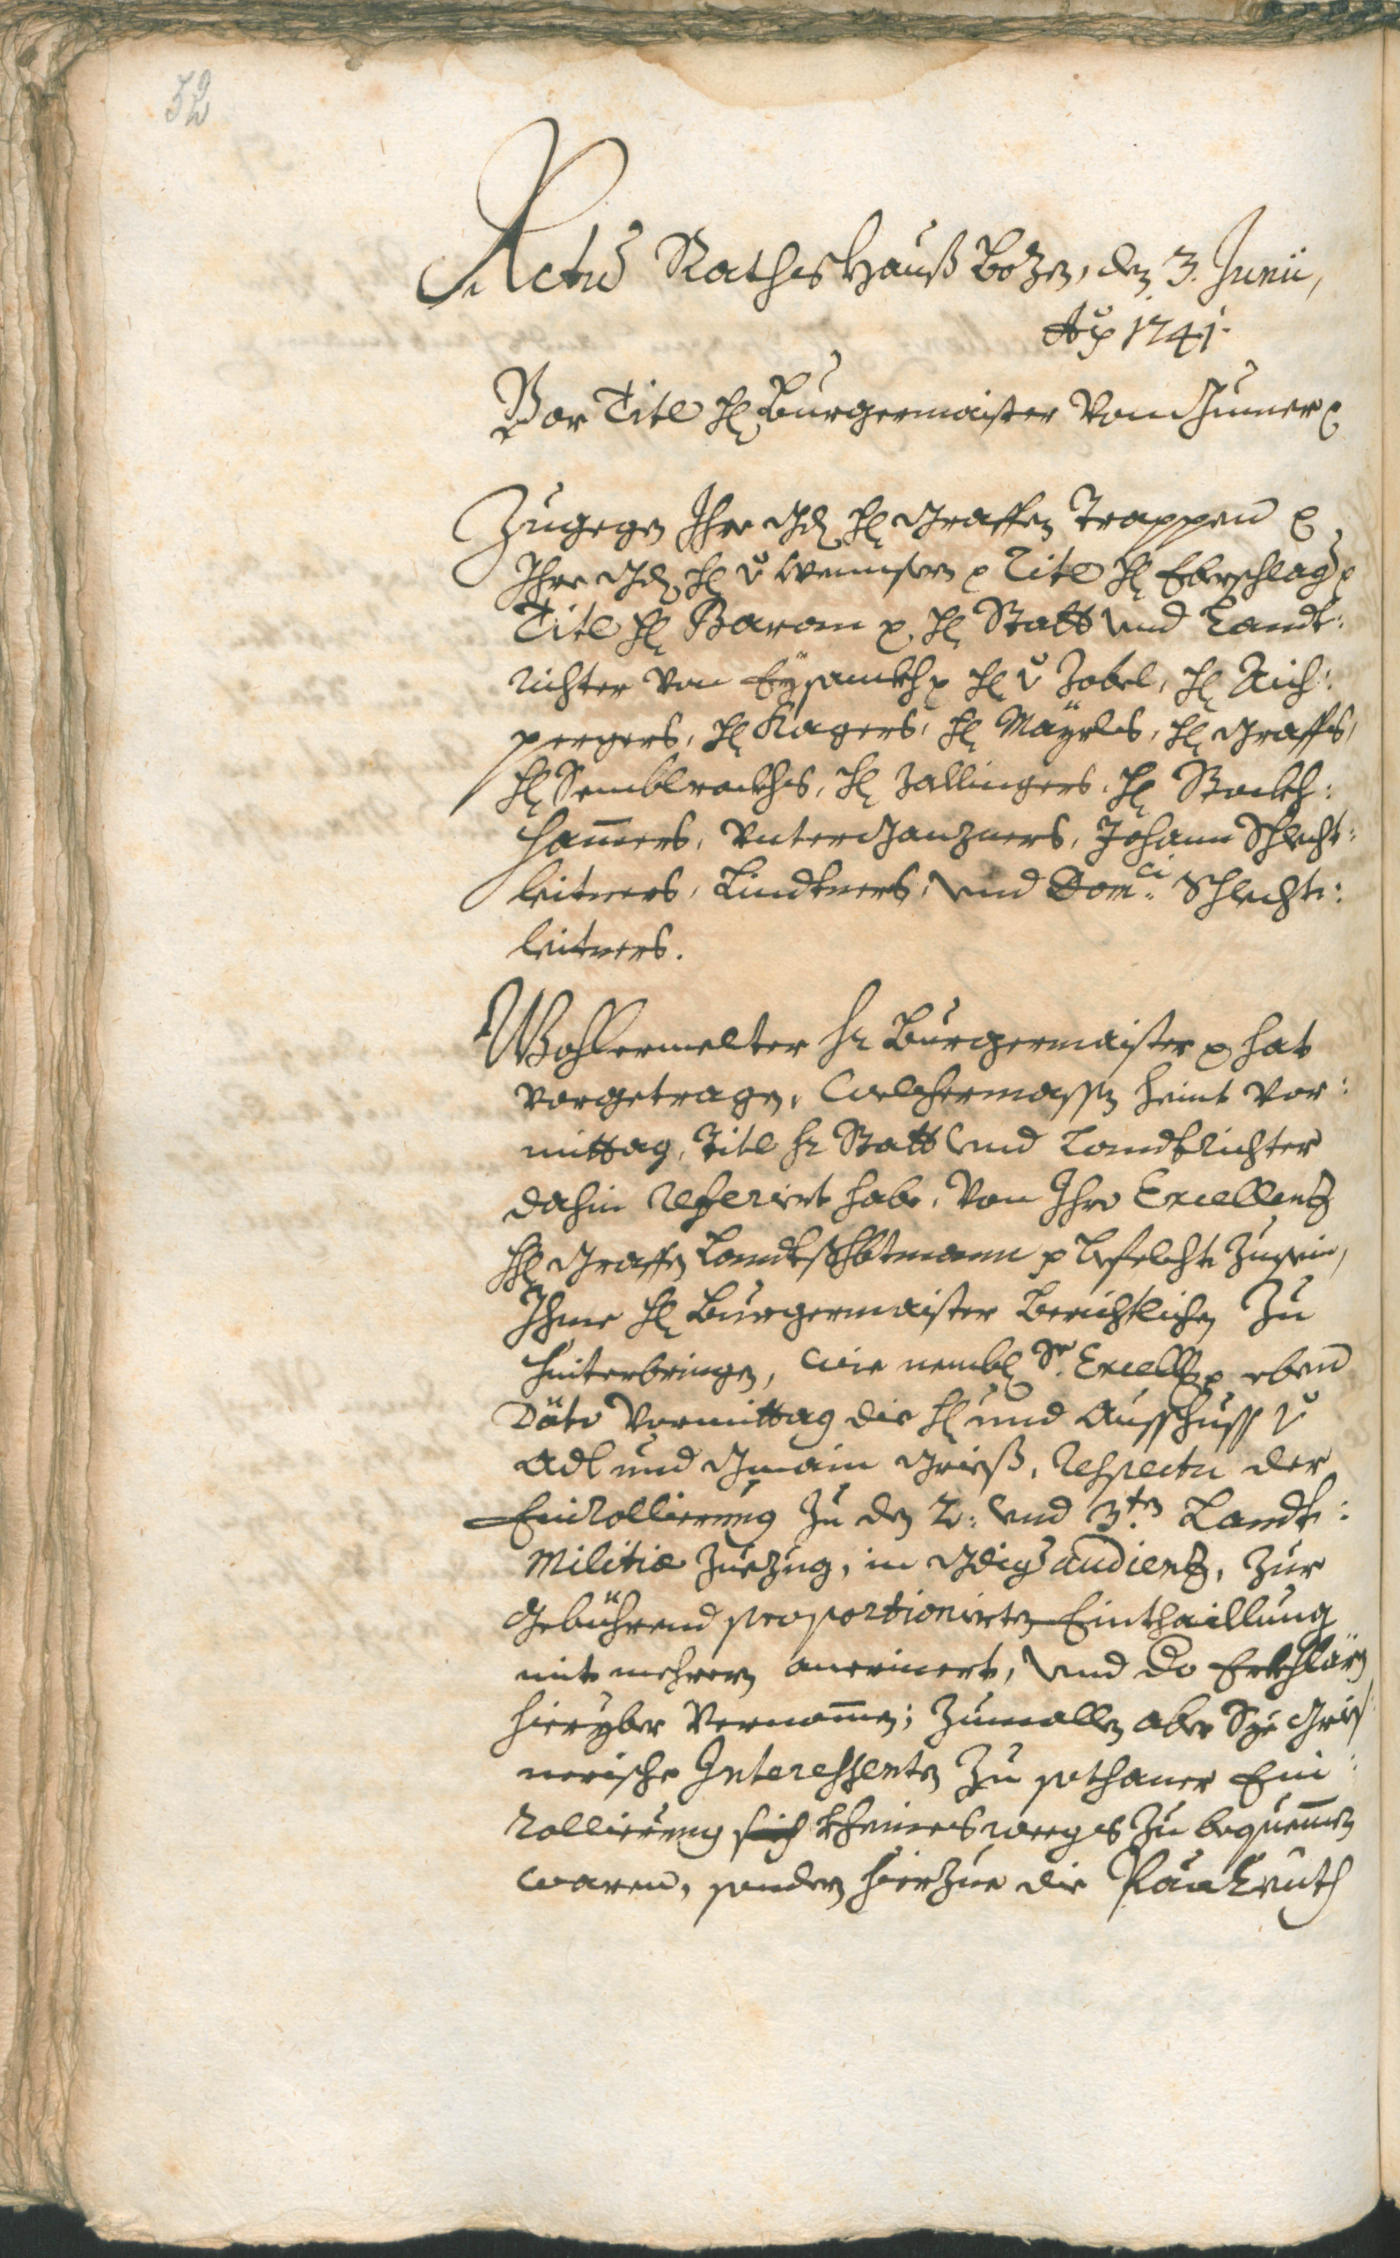 52
Actu Rathes Hauß Bozen, den 3. Junii,
Ao 1741.
Vor Titl H: Burgermaister von Gumer p
Zugegen Ihro Gd: H: Graffen Trappen p
Ihro Gd: H: v: Wenusern p Titl H: Eberschlag p
Titl H: Baron p. H: Statt und Landt:
richter von Eysanckh p H: v: Zobel, H: Aich:
pergers, H: Kagers, H: Mayrls, H: Graffs,
H: Semblrockhs, H: Zallingers, H: Stockh:
hamers, Unterganzners, Johann Schlecht:
leitners, Lindtners, und Dom:ci Schlecht:
leitners.
Wohlermelter Hr Burgermaister p hat
vorgetragen, welchermassen heint vor:
mittag, Titl Hr Statt und Landtrichter
dahin referirt habe, von Ihro Excellenz
H: Graffen Landtshbtmann p befelcht zusein,
Ihme H: Burgermaister berichtlichen zu
hinterbringen, wie nembl: Sr. Excell: p eben
dato vormittag die H: und Ausschuss v:
Adl und Gmain Grieß, respectu der
Einrollierung zu den 2: und 3.ten Landt:
Militia Zuezug, in gdigr audienz, zur
gebührend proportionierten Einthaillung
mit mehrern anerinert, und do Erkhlären
hieryber vernomen; zumallen aber Sye Gries
nerische Interessenten zu sothaner Ein:
rollierung sich kheinesweegs zu bequemen
waren, sondern hierzue die Pauleuth